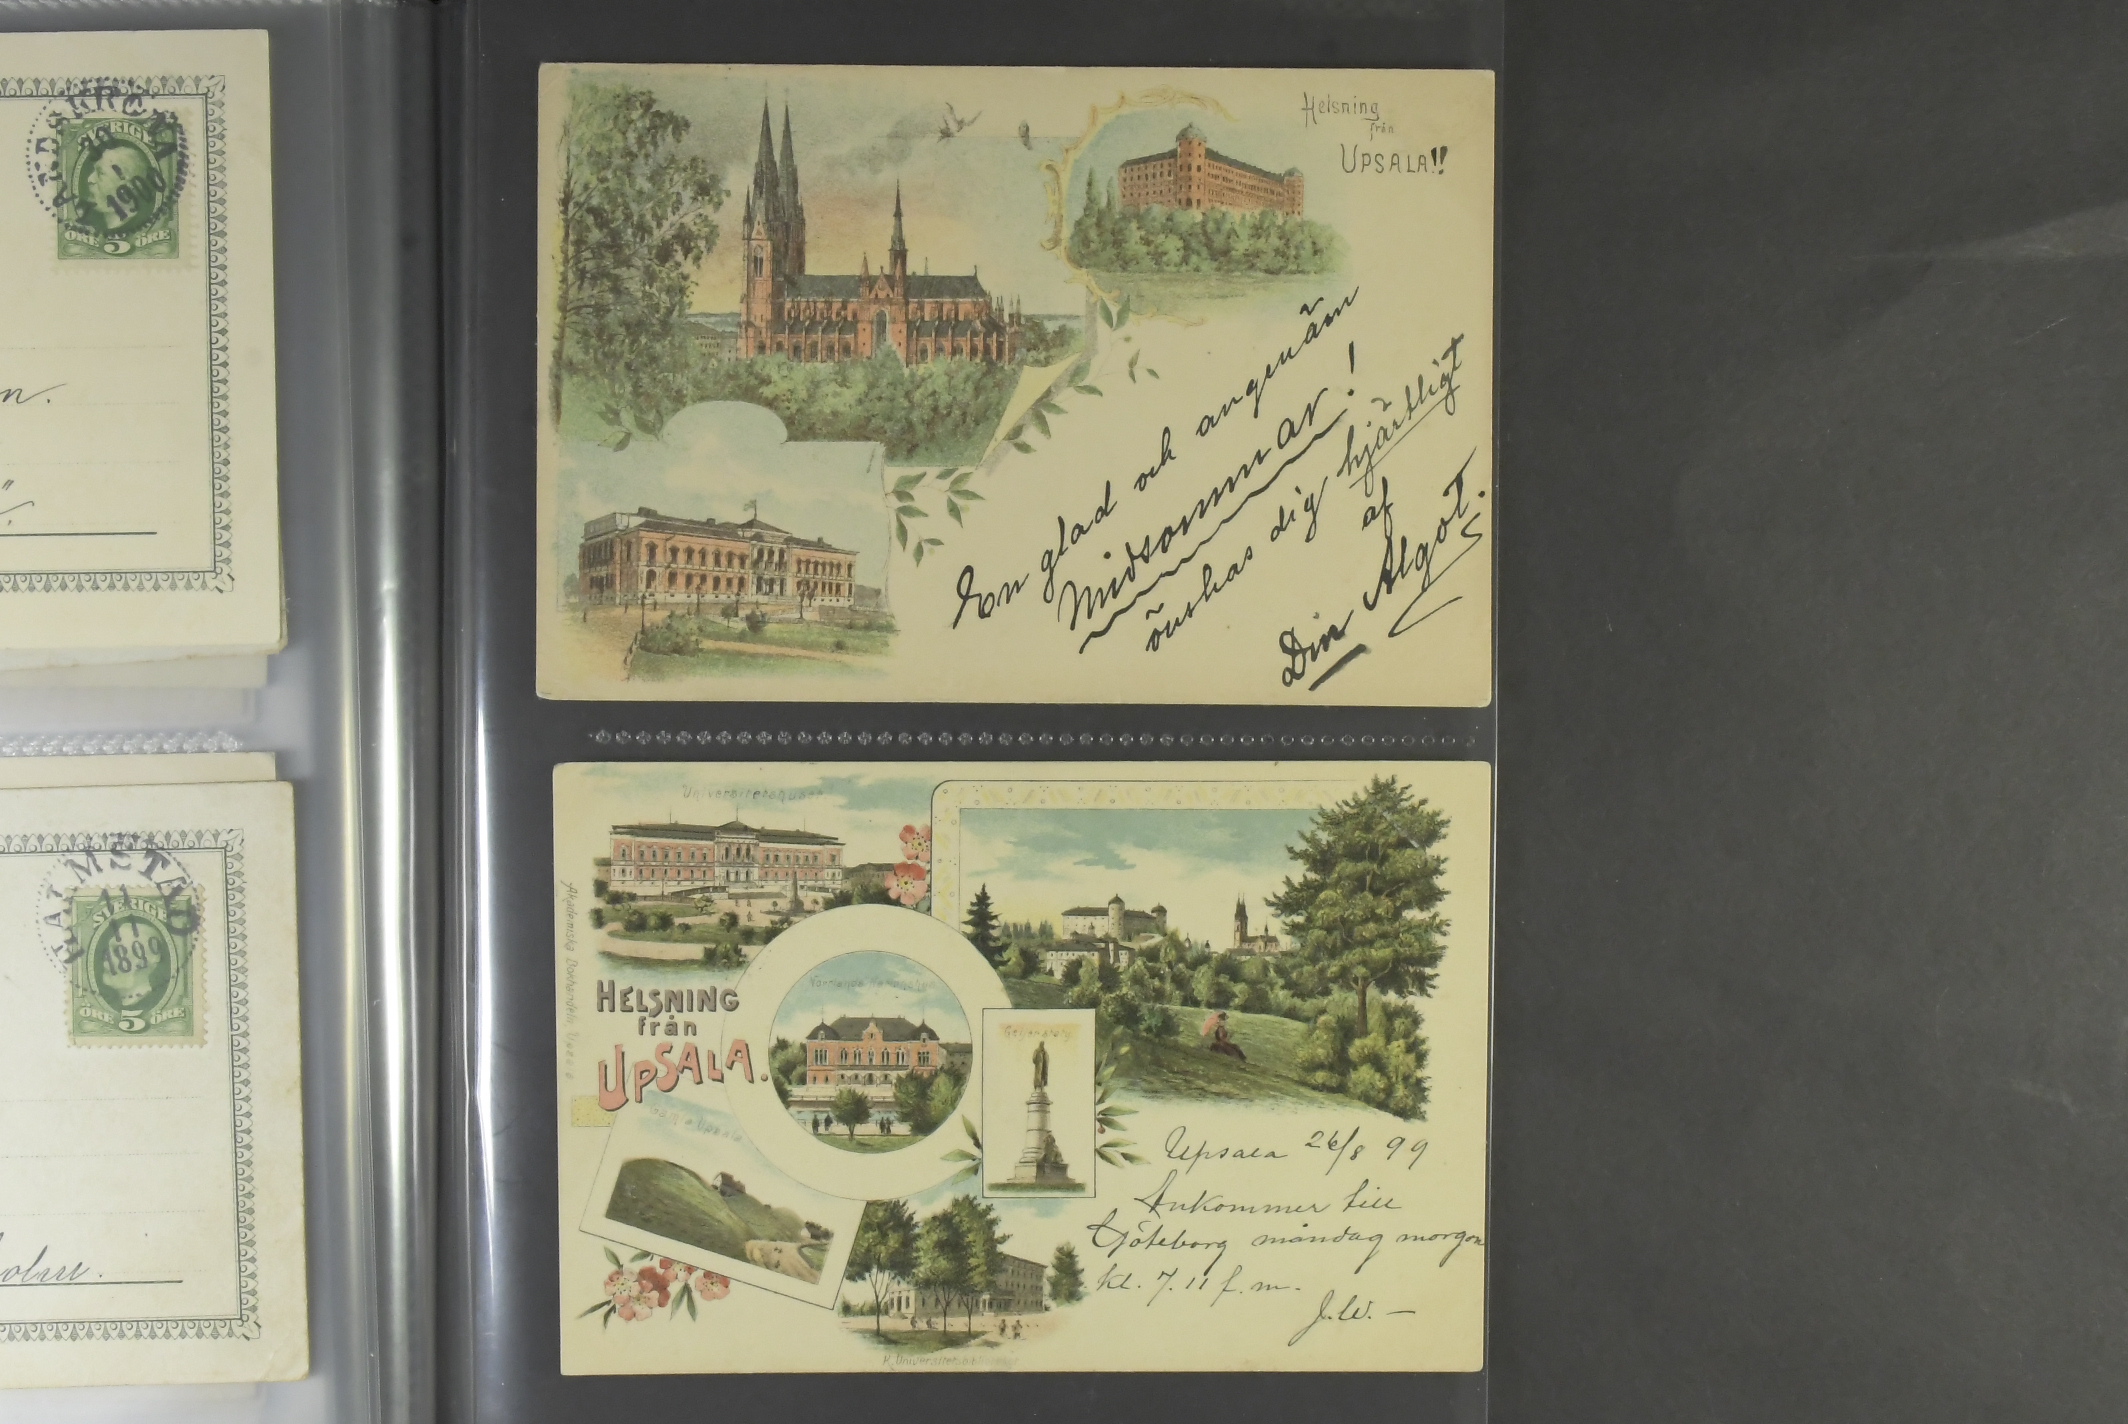 LANDSKRONA
20
1
1900
SVERIGE
ÖRE 5 ÖRE
n.
Helsning
från
UPSALA!!
En glad och angenäm
Midsommar!
önskas dig hjärtligt
af
Din Algot.
HALMSTAD
11
11
1899
SVERIGE
ÖRE 5 ÖRE
Universitetshuset
Akademiska Bokhandeln Upsala
HELSNING
från
UPSALA.
Norrlands nationshus
Geijerstaty
Gamla Upsala
K. Universitetsbiblioteket
Upsala 26/8 99
Ankommer till
Göteborg måndag morgon
kl. 7.11 f.m.
J.W. –